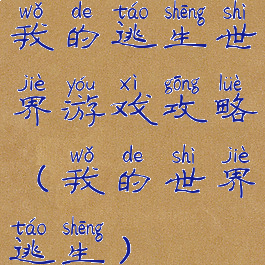 wǒ de táo shēng shì
我的逃生世
jiè yóu xì gōng lüè
界游戏攻略
wǒ de shì jiè
（我的世界
táo shēng
逃生）